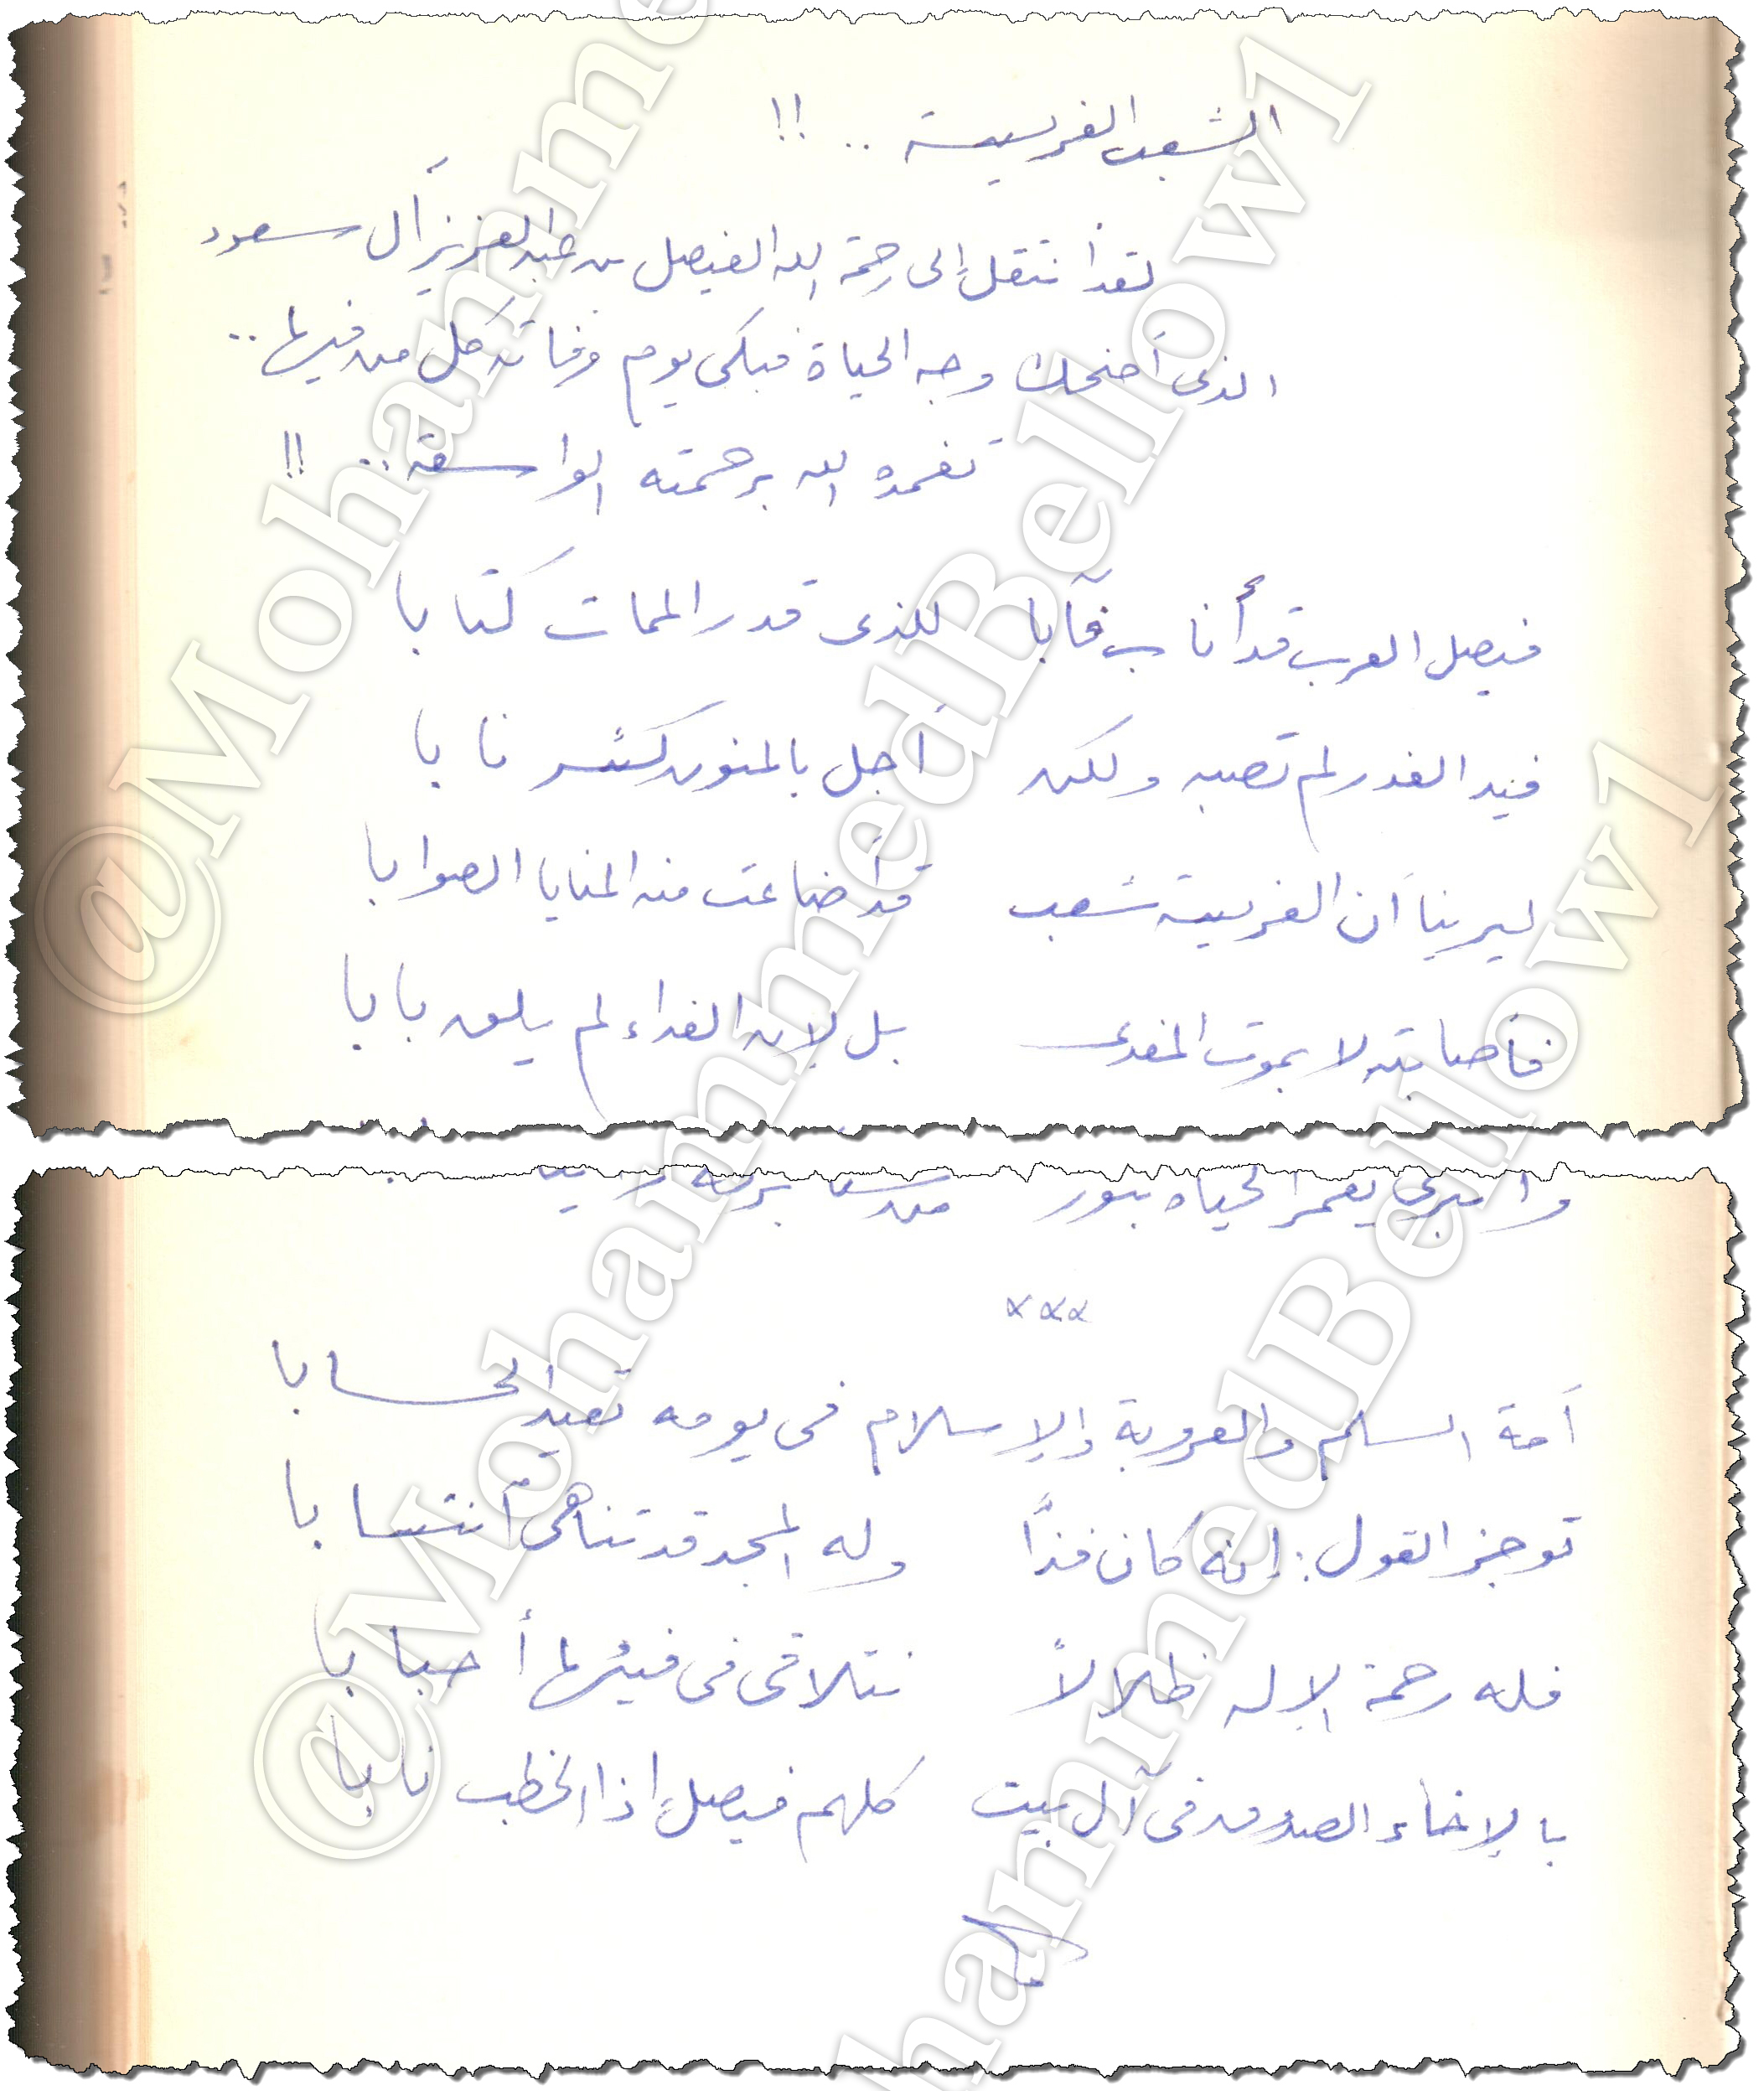 الشعب الفريسة .. !!
لقد انتقل إلى رحمة الله الفيصل بن عبد العزيز آل سعود
الذى أضحك وجه الحياة فبكى يوم وفاته كل من فيها ..
تغمده الله برحمته الواسعة .. !!
فيصل العرب قد أناب فآبا للذى قدر الممات كتابا
فيد الغدر لم تصبه ولكن أجل بالمنون كشر نابا
ليرينا أن الفريسة شعب قد أضاعت منه المنايا الصوابا
فأصابته لا بموت المفدى بل لأن الفداء لم يلق بابا
وانبرى يعمر الحياة بنور من
×××
أمة السلم والعروبة والإسلام فى يومه تعيد الحسابا
توجز القول : إنه كان فذاً وله المجد قد تناهى انتسابا
فله رحمة الإله ظلالاً نتلاقى فى فيئها أحبابا
بالإخاء الصدوق فى آل بيت كلهم فيصل إذا الخطب نابا
@MohammedBellow1
@MohammedBellow1